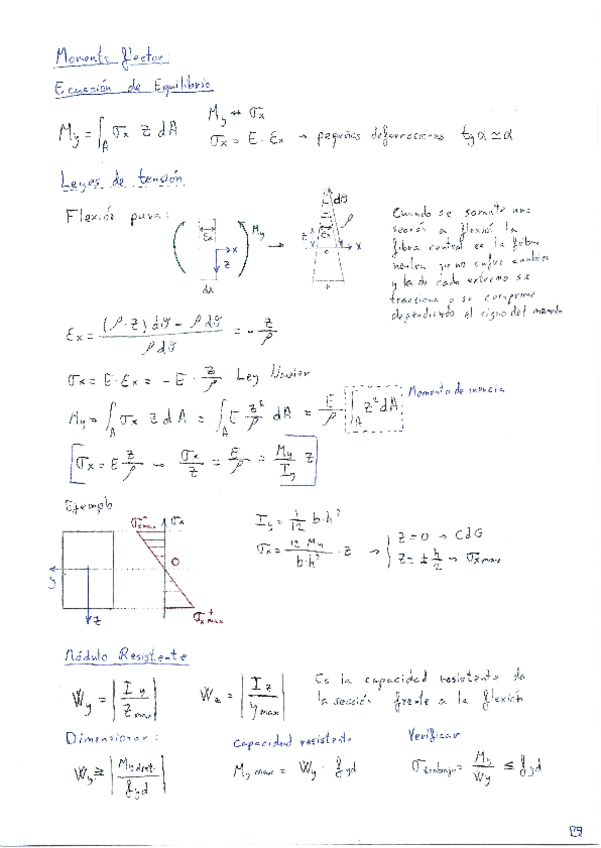 Momento flector:
Ecuación de Equilibrio
M_y = ∫_A σ_x z dA
M_y ↔ σ_x
σ_x = E · ε_x → pequeñas deformaciones tg α ≃ α
Leyes de tensión
Flexión pura:
ε_x
M_y
x
z
dx
dϑ
ρ
z
ε_x
x
Cuando se somete una
sección a flexión la
fibra central es la fibra
neutra ya no sufre cambios
y la de cada extremo se
tracciona o se comprime
dependiendo el signo del momento
ε_x = ((ρ - z) dϑ - ρ dϑ) / (ρ dϑ) = - z/ρ
σ_x = E · ε_x = - E · z/ρ Ley Navier
M_y = ∫_A σ_x z dA = ∫_A E z²/ρ dA = E/ρ ∫_A z² dA Momento de inercia
σ_x = E z/ρ → σ_x/z = E/ρ = M_y/I_y z
Ejemplo
σ_x max⁻
σ_x
y
z
σ_x max⁺
I_y = 1/12 b·h³
σ_x = 12 M_y / b·h³ · z → { z = 0 → CdG
z = ± h/2 → σ_x max
Módulo Resistente
W_y = |I_y / z_max|
W_z = |I_z / y_max|
Es la capacidad resistente de
la sección frente a la flexión
Dimensionar:
W_y ≥ |M_y / f_yd|
Capacidad resistente
M_y max = W_y · f_yd
Verificar
σ_trabajo = M_y / W_y ≤ f_yd